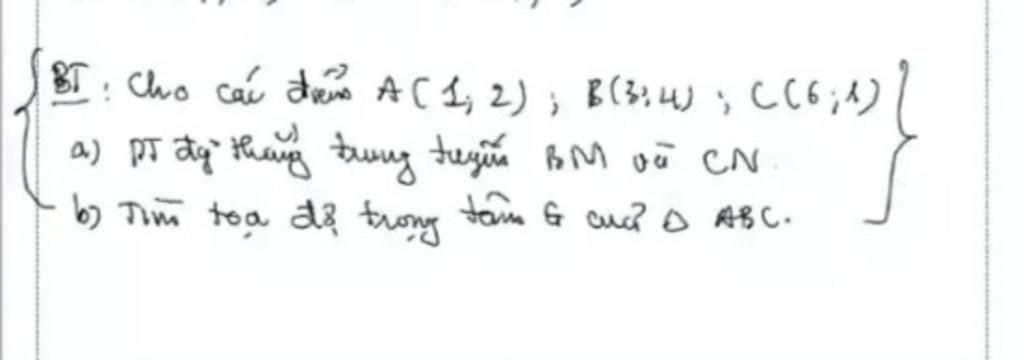 BT : Cho các điểm A(1; 2) ; B(3;4) ; C(6;1)
a) PT đg thẳng trung tuyến BM và CN.
b) Tìm tọa độ trọng tâm G của Δ ABC.